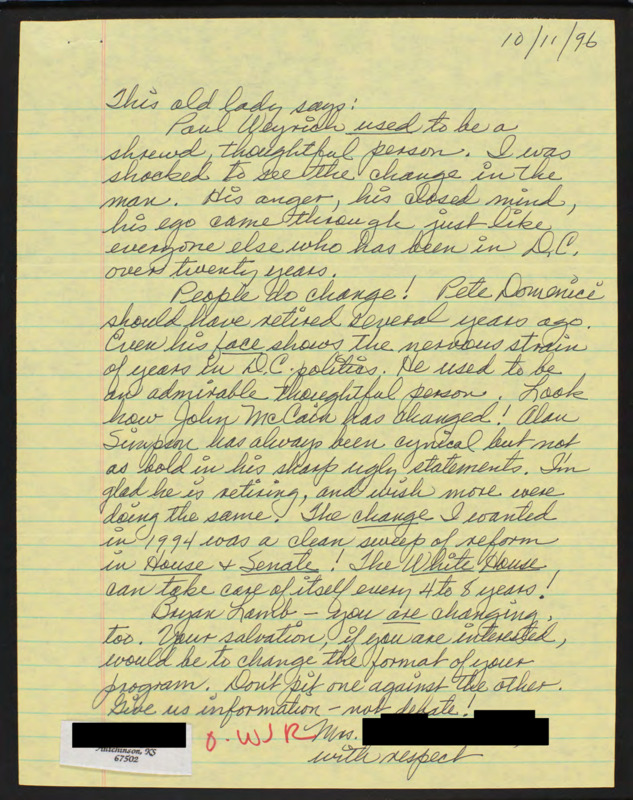 10/11/96
This old lady says:
Paul Weyrich used to be a
shrewd, thoughtful person. I was
shocked to see the change in the
man. His anger, his closed mind,
his ego came through just like
everyone else who has been in D.C.
over twenty years.
People do change! Pete Domenici
should have retired several years ago.
Even his face shows the nervous strain
of years in D.C. politics. He used to be
an admirable thoughtful person. Look
how John McCain has changed! Alan
Simpson has always been cynical but not
as bold in his sharp ugly statements. I'm
glad he is retiring, and wish more were
doing the same. The change I wanted
in 1994 was a clean sweep of reform
in House & Senate! The White House
can take care of itself every 4 to 8 years!
Bryan Lamb - you are changing,
too. Your salvation, if you are interested,
would be to change the format of your
program. Don't pit one against the other.
Give us information - not debate!
Mrs.
with respect
O-WJR
Hutchinson, KS
67502